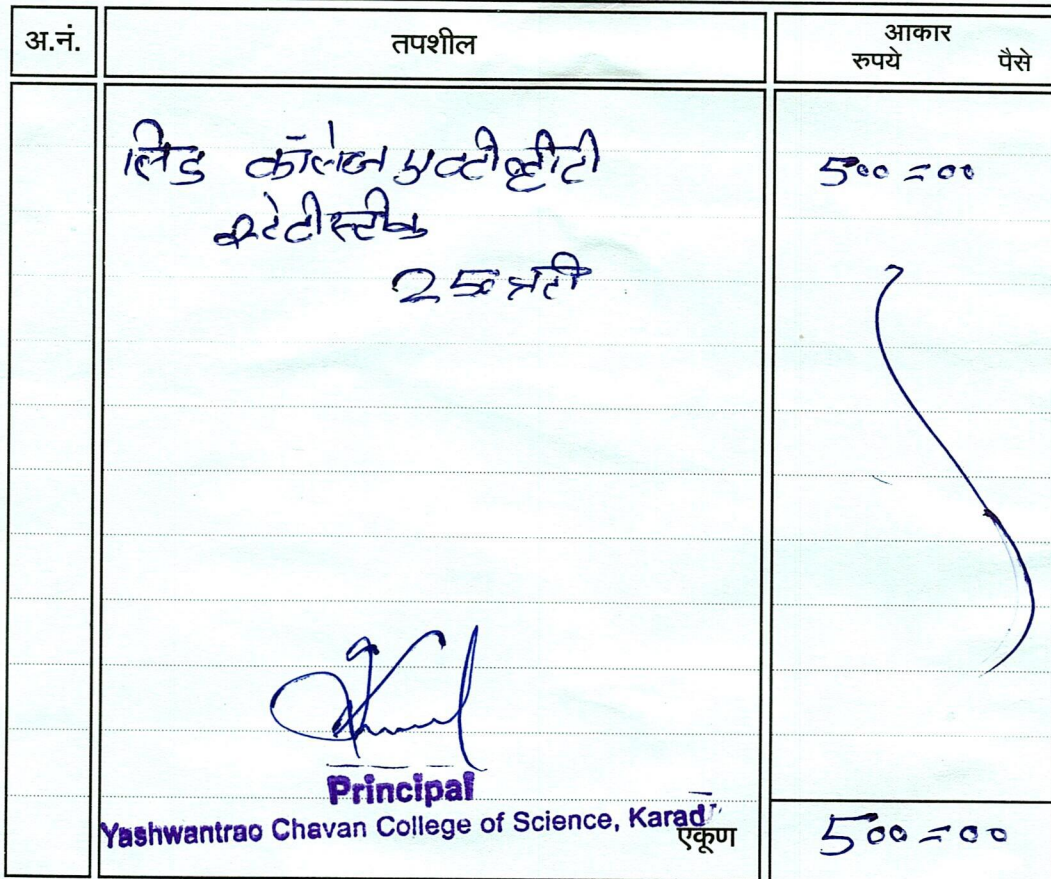 अ.नं. तपशील आकार
रुपये पैसे
लिड कॉलेज एक्टीव्हीटी 500=00
स्टेटीस्टीक
250 प्रती
Principal
Yashwantrao Chavan College of Science, Karad
एकूण 500=00